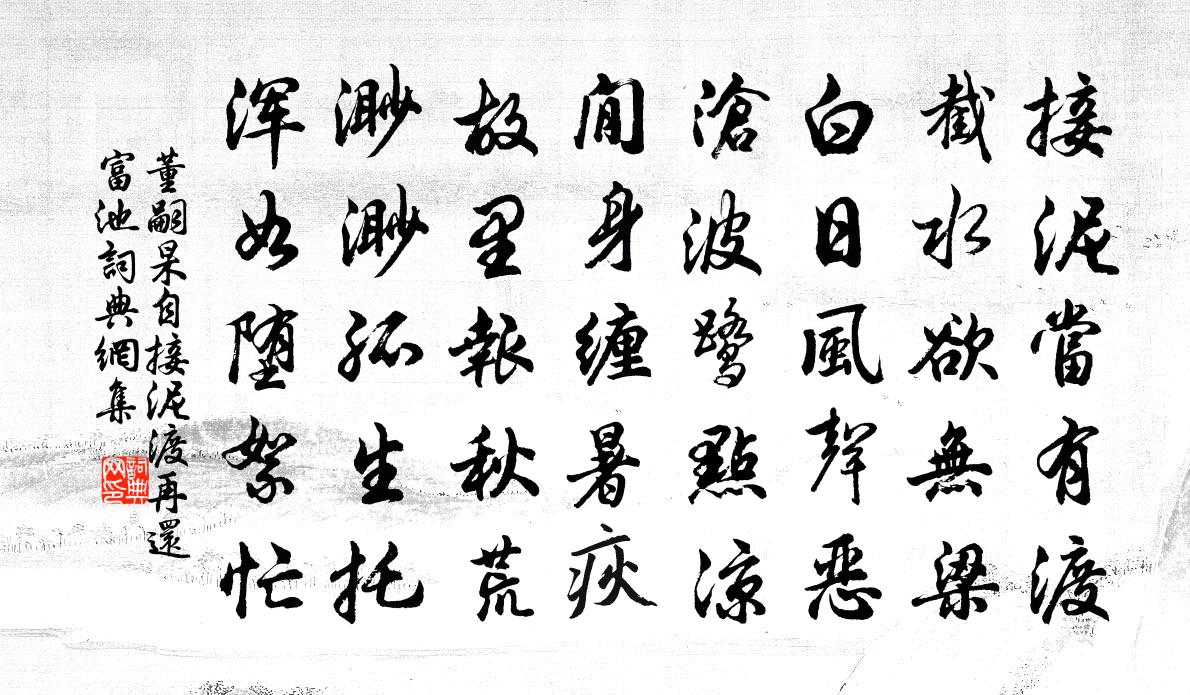 接泥當有渡
截水欲無梁
白日風聲惡
滄波鷺點涼
閒身纏暑疢
故里報秋荒
渺渺孤生托
浑如堕絮忙
董嗣杲自接泥渡再還
富池詞典網集
詞典網印